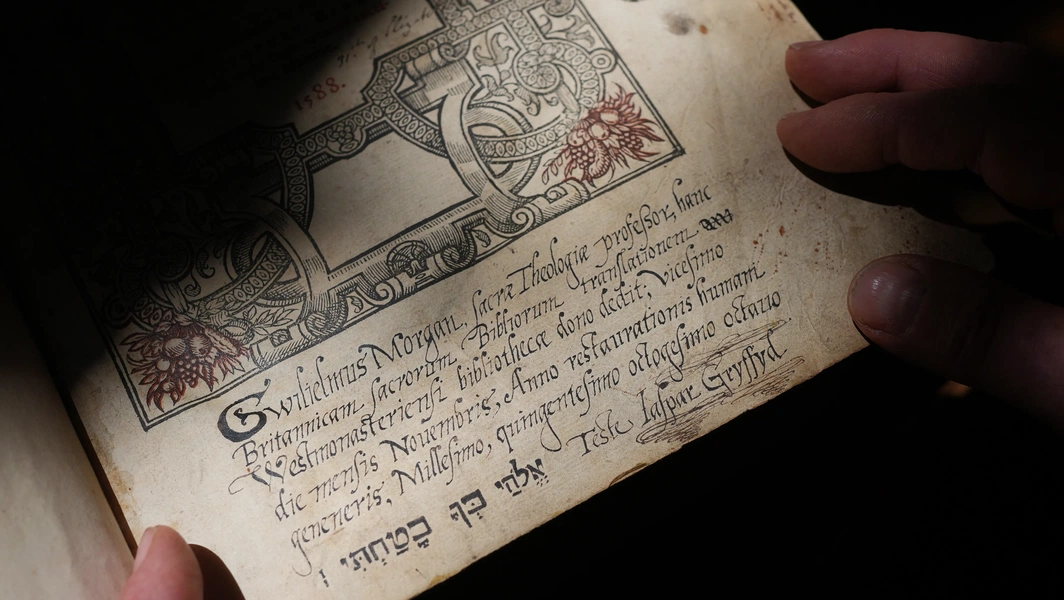 1588.
Gwilielmus Morgan, sacræ Theologiæ professor, hanc
Britannicam sacrorum Bibliorum translationem
Westmonasteriensi bibliothecæ dono dedit, vicesimo
die mensis Novembris, Anno restaurationis humani
generis, Millesimo, quingentesimo octogesimo octauo
Teste Iaspar Gryffyd
אֱלֹהַי בְּךָ בָטַחְתִּי